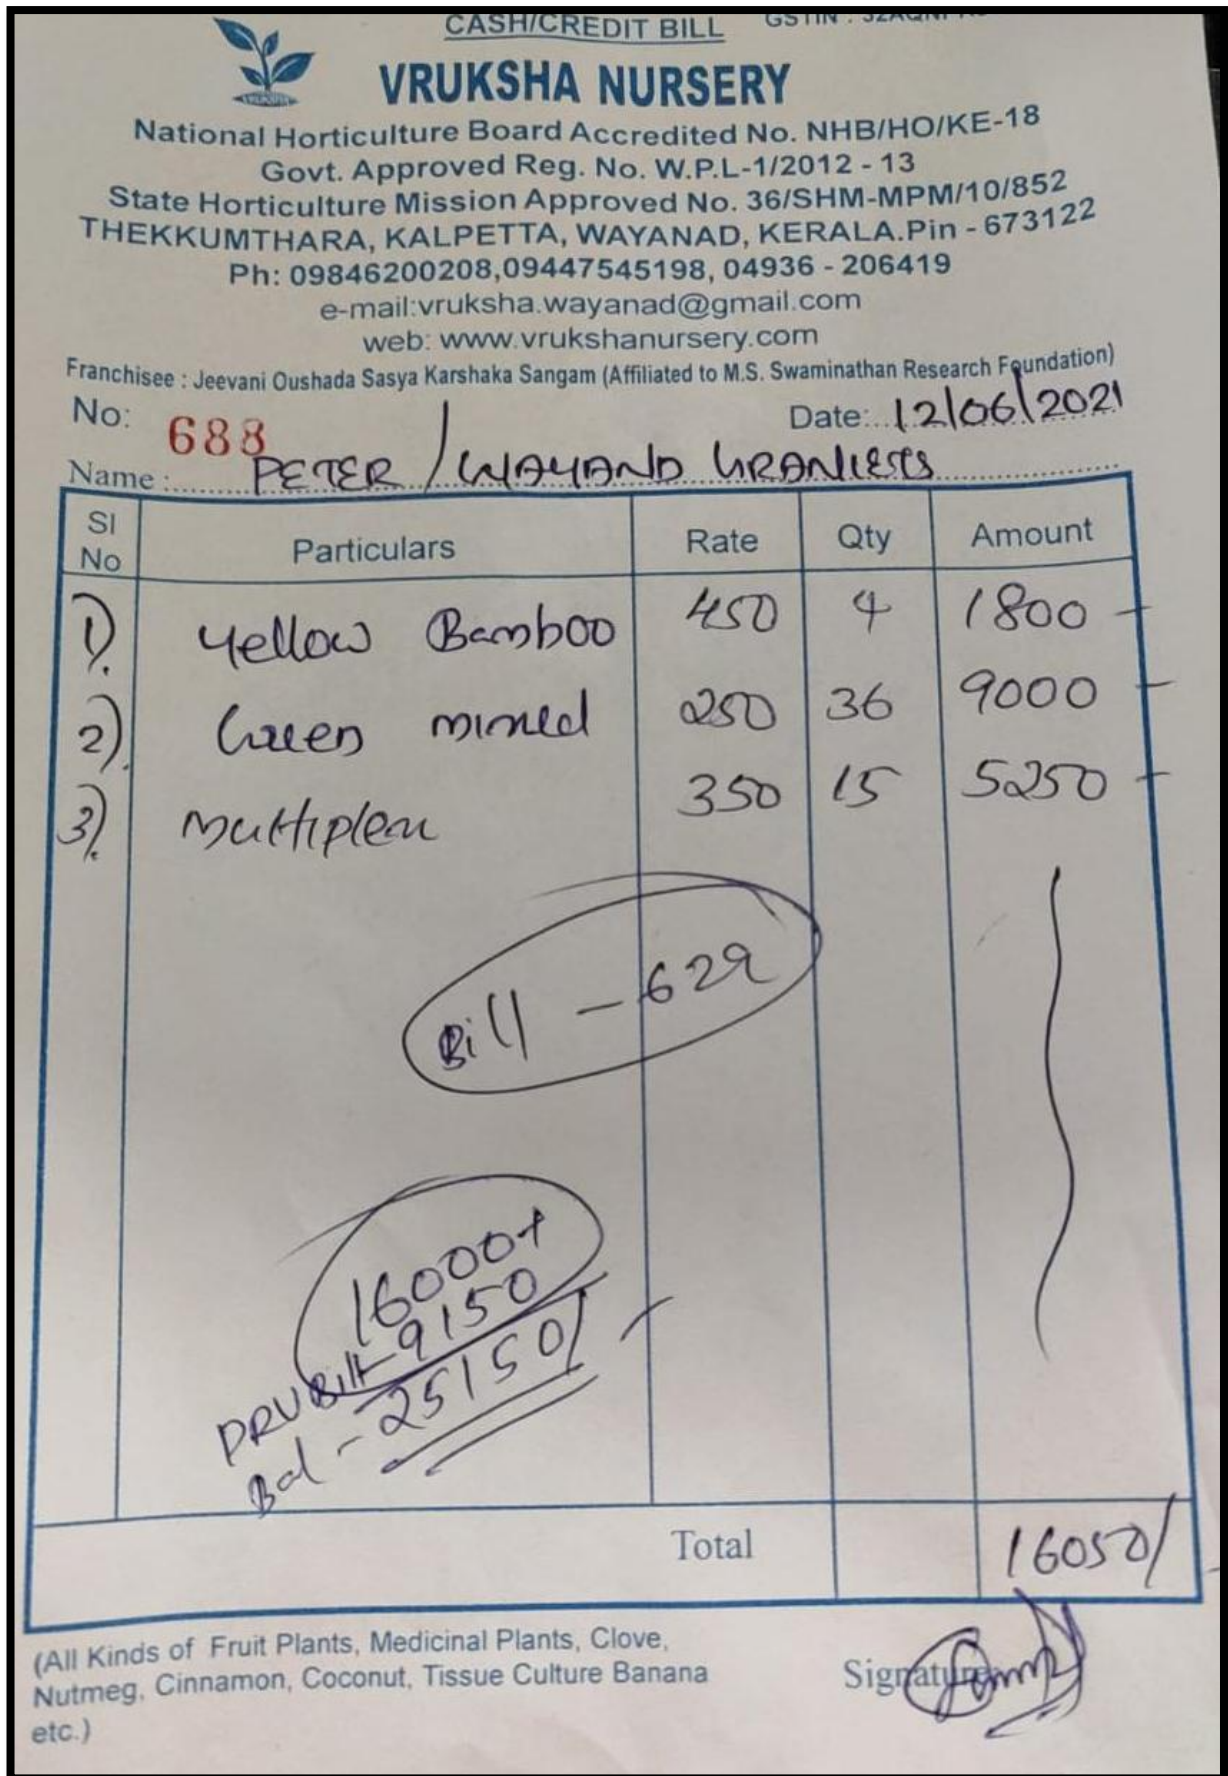 CASH/CREDIT BILL
VRUKSHA
VRUKSHA NURSERY
National Horticulture Board Accredited No. NHB/HO/KE-18
Govt. Approved Reg. No. W.P.L-1/2012 - 13
State Horticulture Mission Approved No. 36/SHM-MPM/10/852
THEKKUMTHARA, KALPETTA, WAYANAD, KERALA.Pin - 673122
Ph: 09846200208,09447545198, 04936 - 206419
e-mail:vruksha.wayanad@gmail.com
web: www.vrukshanursery.com
Franchisee : Jeevani Oushada Sasya Karshaka Sangam (Affiliated to M.S. Swaminathan Research Foundation)
No: 688 Date: 12/06/2021
Name : PETER / WAYAND
Sl No Particulars Rate Qty Amount
1). Yellow Bamboo 450 4 1800 -
2). Green 250 36 9000 -
3). 350 15 5250 -
Bill - 629
16000+
PRV Bill - 9150
Bal - 25150/-
Total 16050/-
(All Kinds of Fruit Plants, Medicinal Plants, Clove,
Nutmeg, Cinnamon, Coconut, Tissue Culture Banana
etc.)
Signature